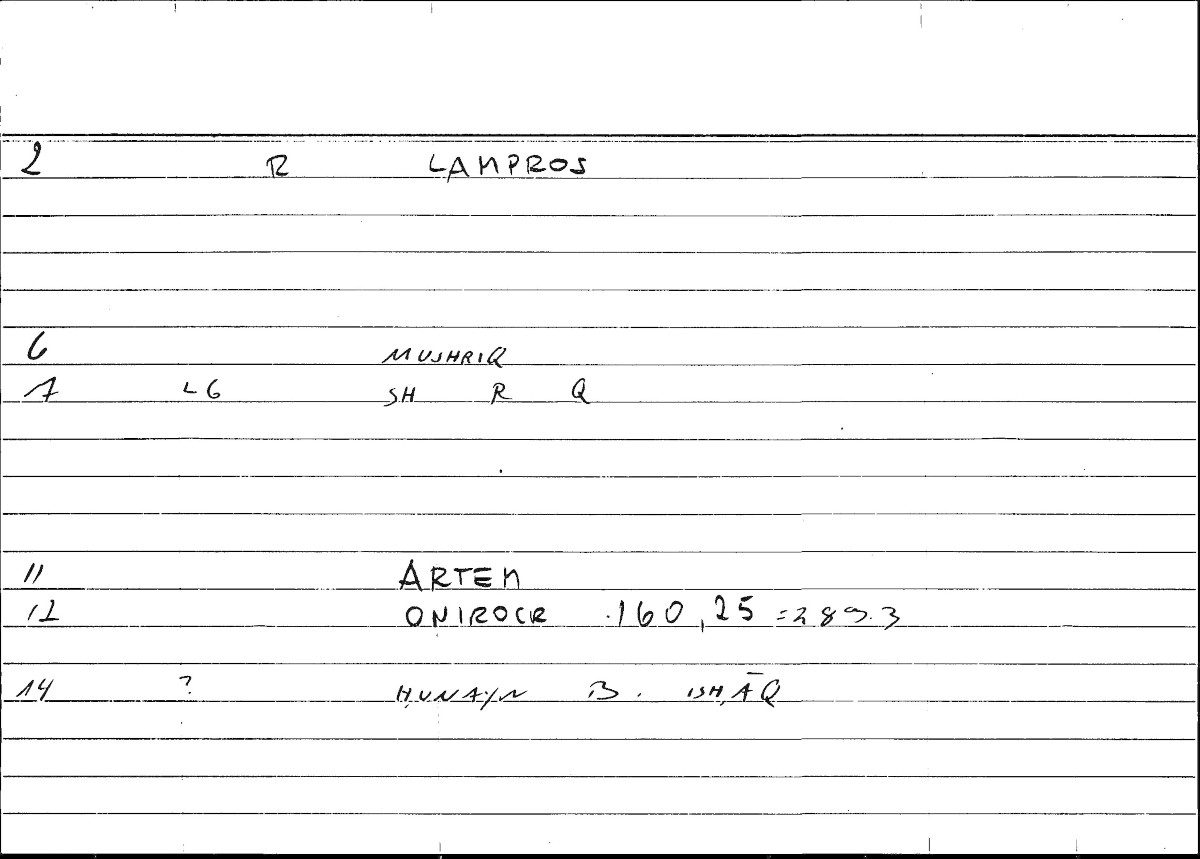 2 R LAMPROS
6 MUSHRIQ
7 L6 SH R Q
11 ARTEM
12 ONIROCR .160,25 =289.3
14 ? ḤUNAYN B. ISḤĀQ